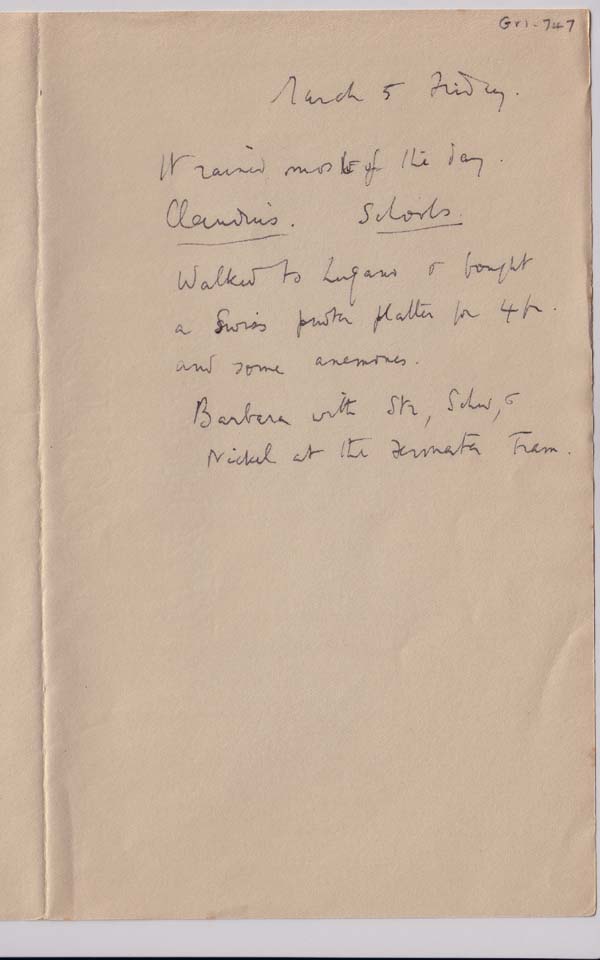 Gr1-747
March 5 Friday.
It rained most of the day.
Claudius. Schools.
Walked to Lugano & bought
a Swiss pewter platter for 4 fr.
and some anemones.
Barbara with Str, Schw, &
Nickel at the Tram.